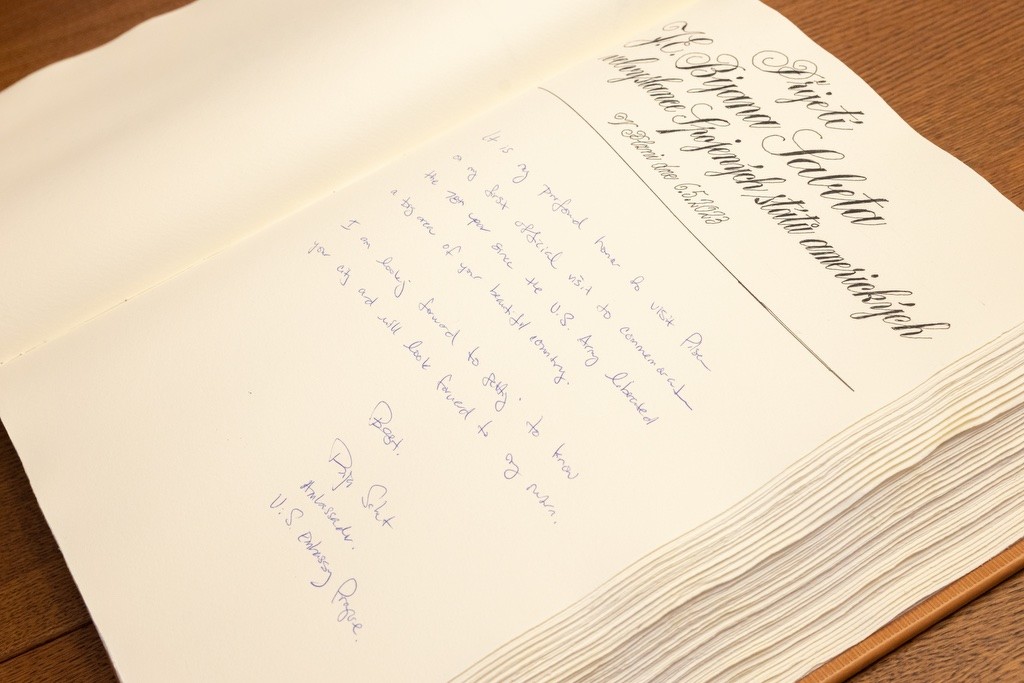 Přijetí
J.E. Bijana Sabeta
velvyslance Spojených států amerických
V Plzni dne 6.5.2023
It is my profound honor to visit Pilsen
on my first official visit to commemorate
the year since the U.S. Army liberated
a big area of your beautiful country.
I am looking forward to getting to know
your city and will look forward to my return.
Best,
Bijan Sabet
Ambassador.
U.S. Embassy Prague.